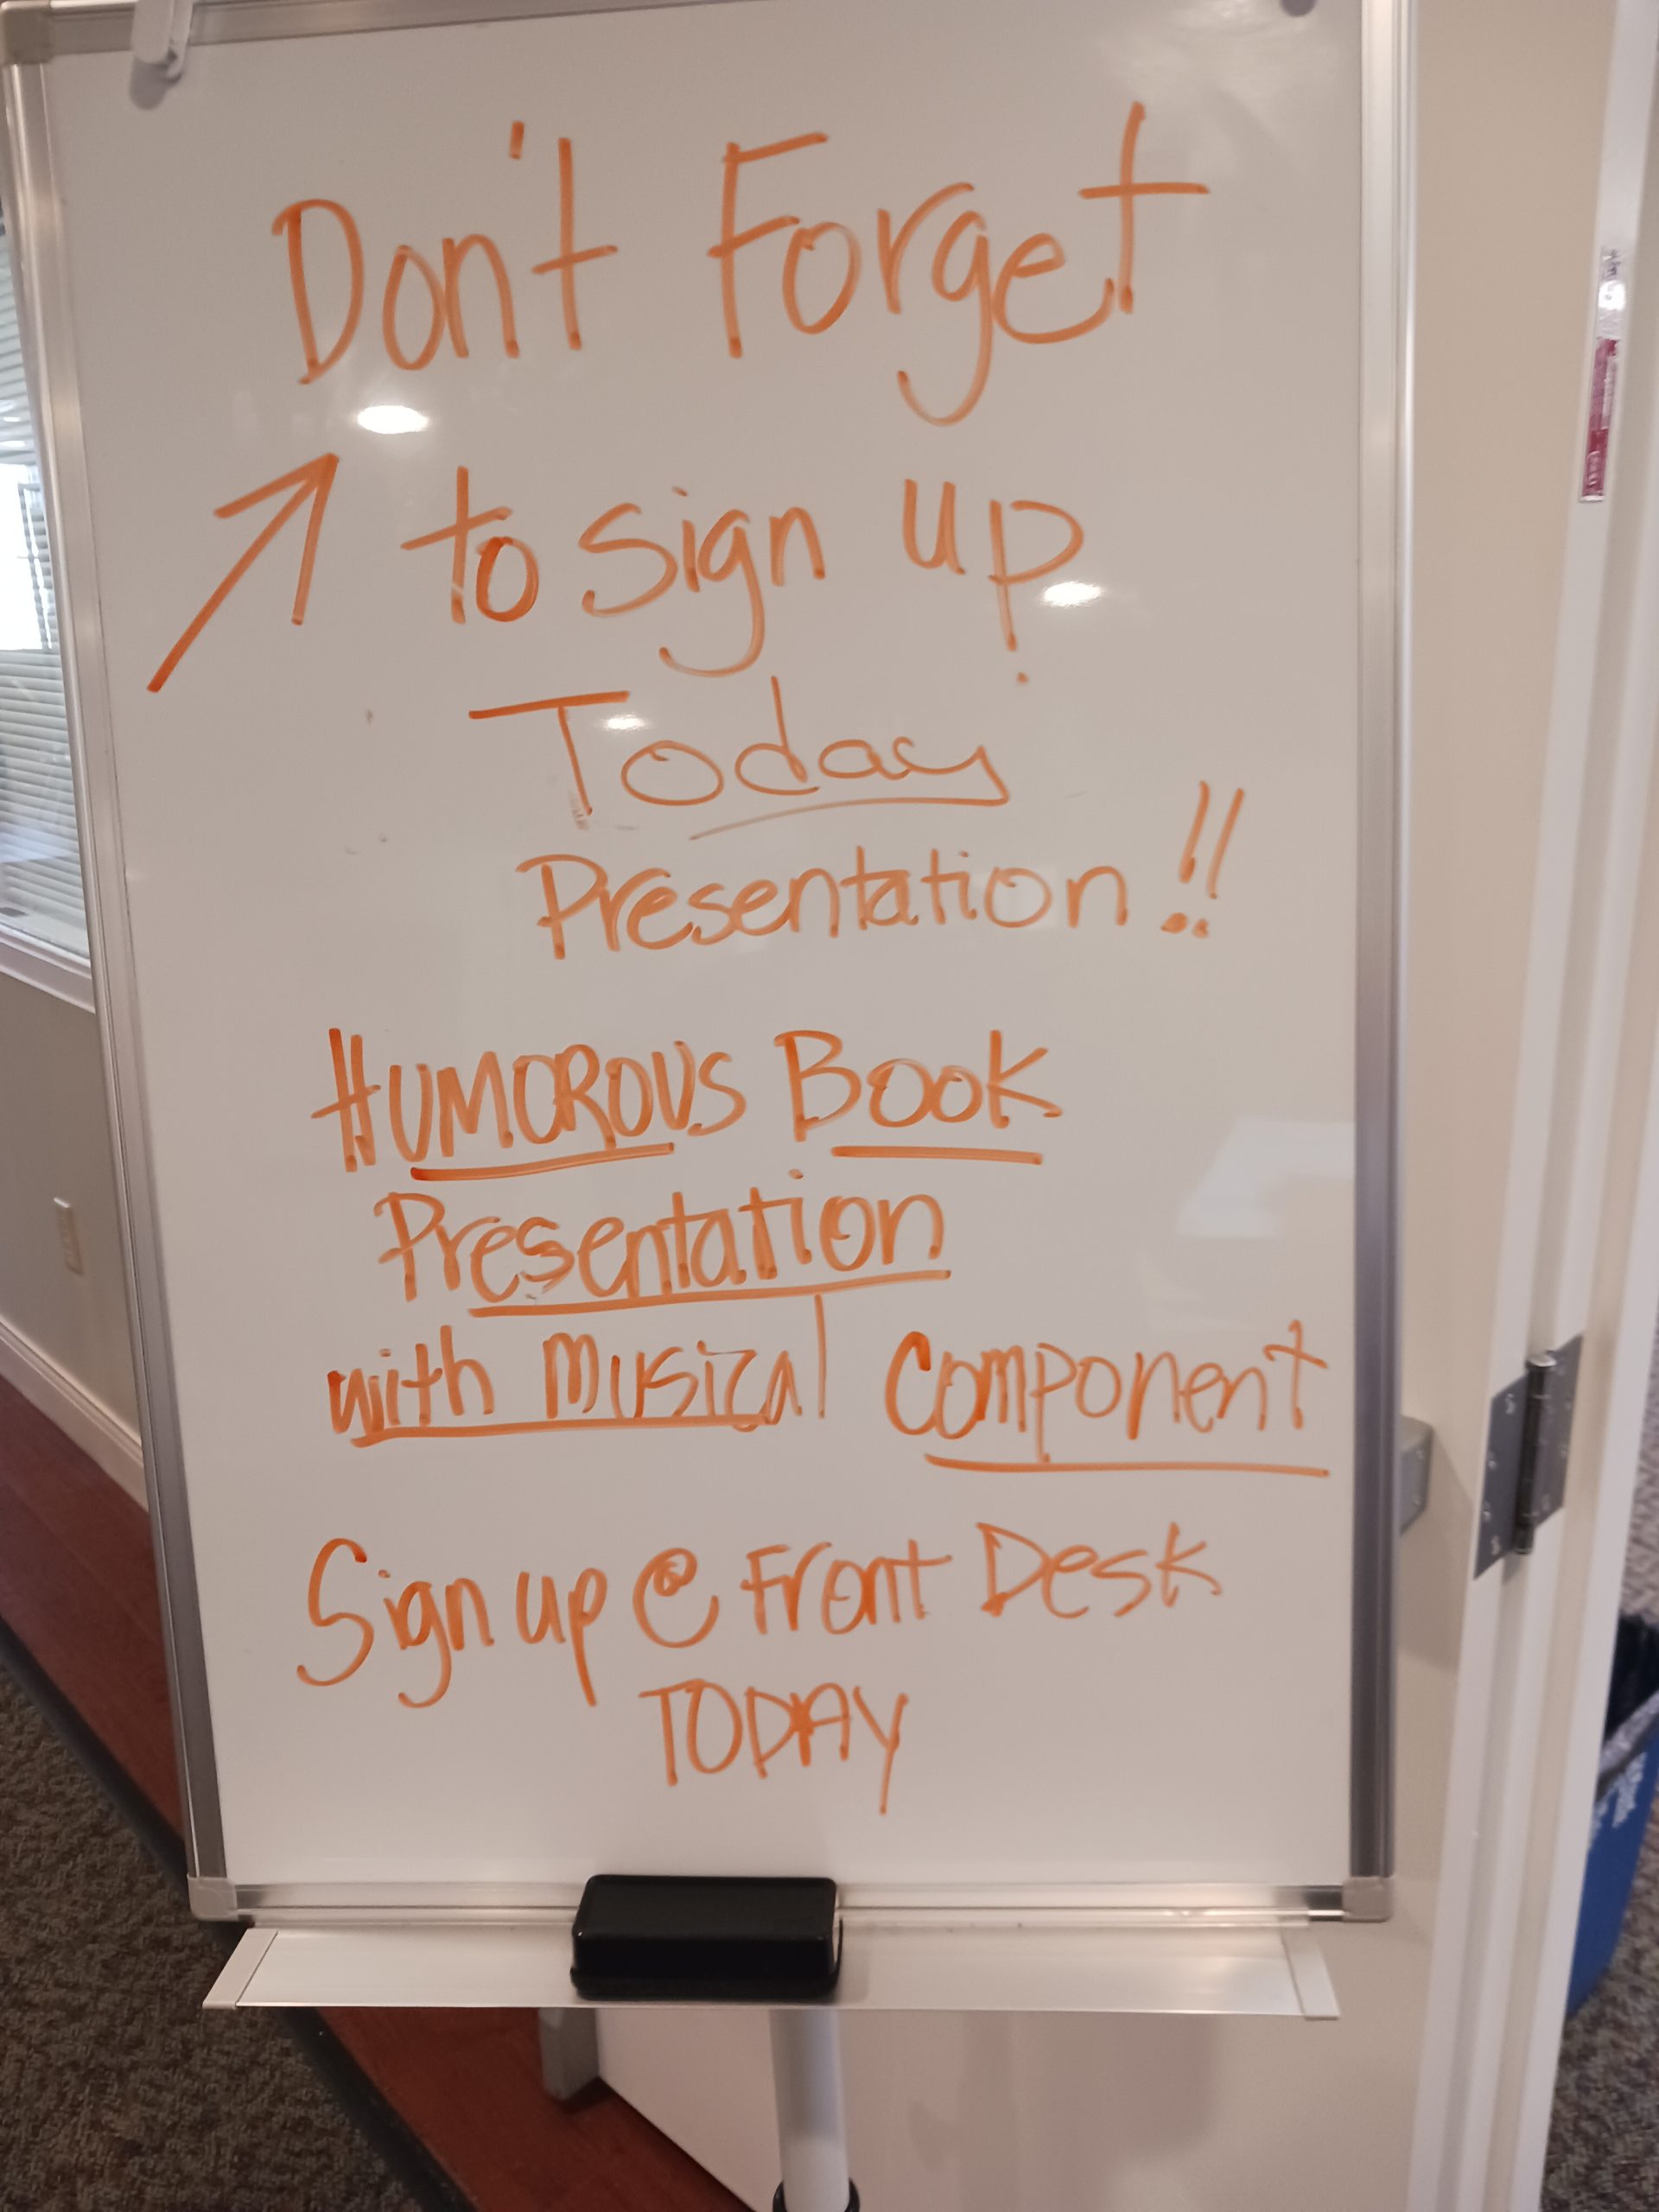 Don't Forget
to sign up
Today
Presentation!!
HUMOROUS BOOK
Presentation
with Musical Component
Sign up @ Front Desk
TODAY